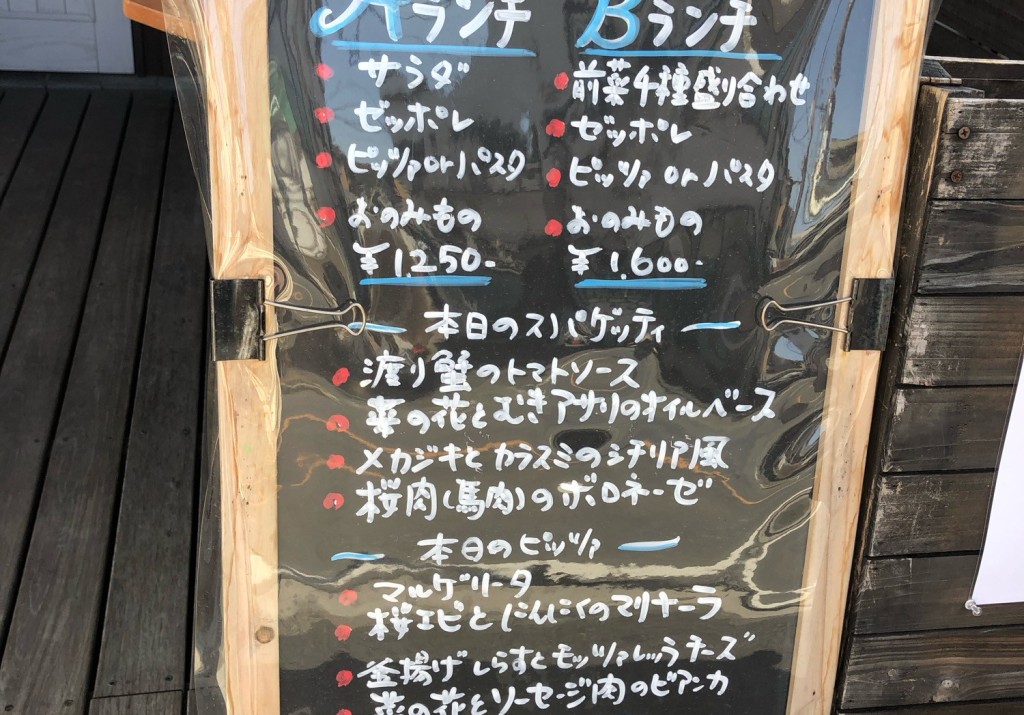 Aランチ
サラダ
ゼッポレ
ピッツァorパスタ
おのみもの
¥1,250-
Bランチ
前菜4種盛り合わせ
ゼッポレ
ピッツァorパスタ
おのみもの
¥1,600-
本日のスパゲッティ
渡り蟹のトマトソース
菜の花とむきアサリのオイルベース
メカジキとカラスミのシチリア風
桜肉(馬肉)のボロネーゼ
本日のピッツァ
マルゲリータ
桜エビとにんにくのマリナーラ
釜揚げしらすとモッツァレッラチーズ
菜の花とソーセージ肉のビアンカ